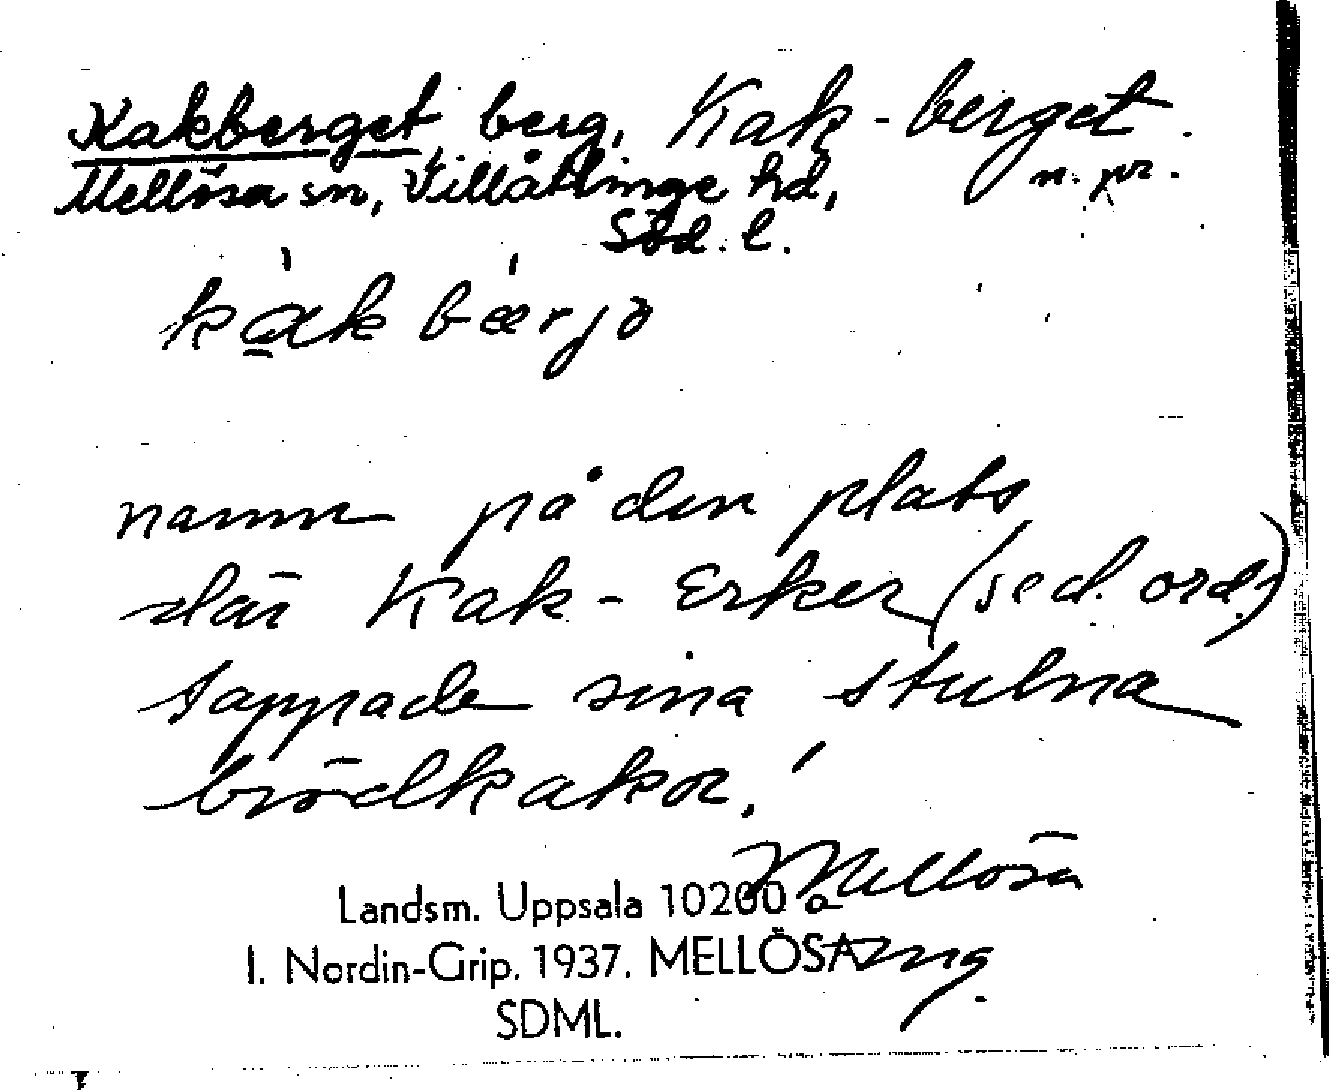 Kakberget, berg, Kak-berget.
Mellösa sn, Villåttinge hd, n. pr.
Söd. l.
kakbærjə
namn på den plats
där Kak-Erker (se d. ord.)
tappade sina stulna
brödkakor!
Mellösa
Landsm. Uppsala 10200 a
I. Nordin-Grip. 1937. MELLÖSA
SDML.